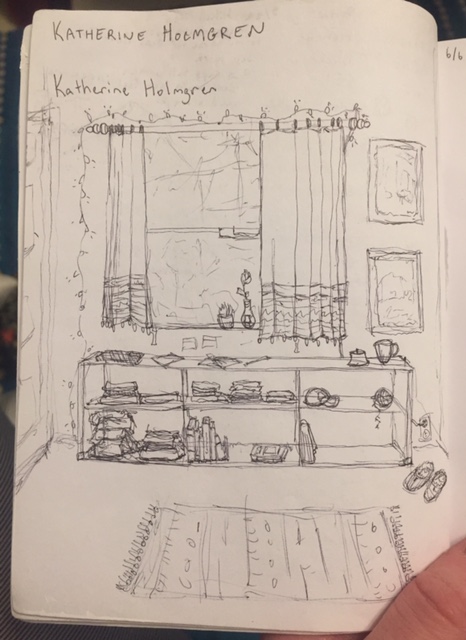 KATHERINE HOLMGREN
Katherine Holmgren
6/6